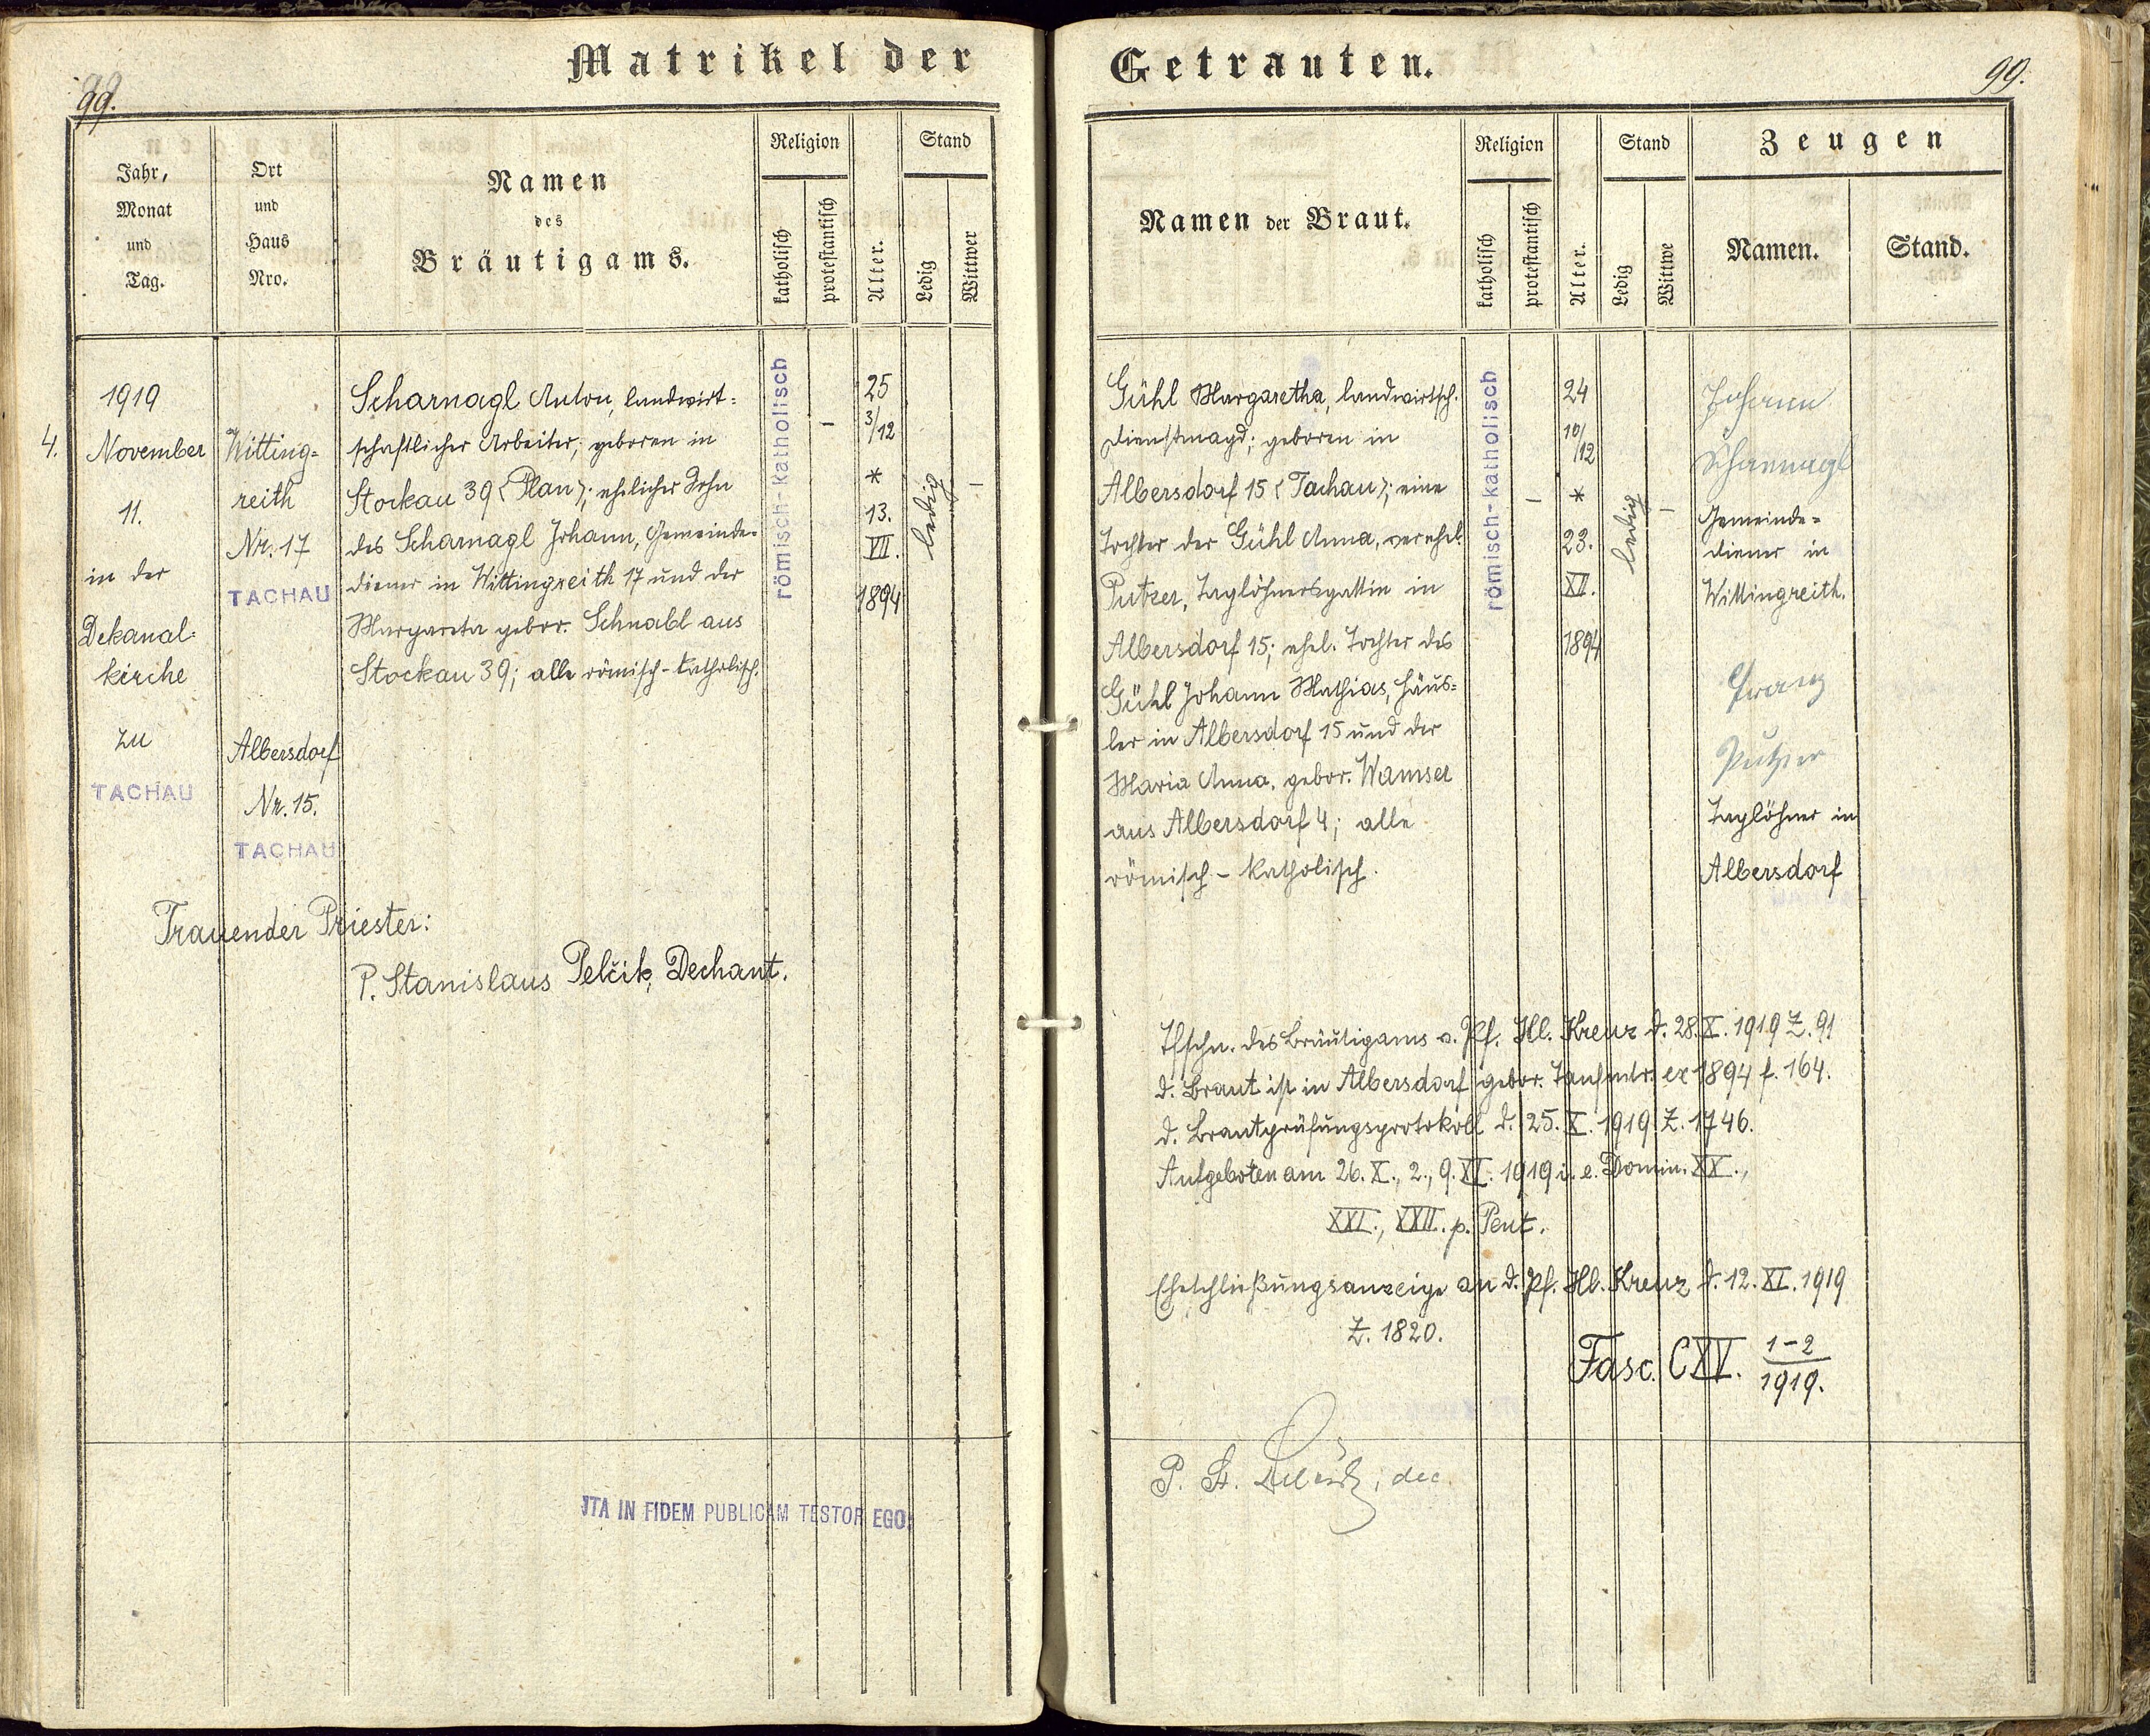 Matrikel der
99.
Jahr,
Monat
und
Tag.
Ort
und
Haus
Nro.
Namen
des
Bräutigams.
Religion
katholisch
protestantisch
Alter.
Stand
Ledig
Wittwer
4.
1919
November
11.
in der
Dekanal-
kirche
zu
TACHAU
Witting-
reith
Nr. 17
TACHAU
Albersdorf
Nr. 15.
TACHAU
Scharnagl Anton, landwirt-
schaftlicher Arbeiter; geboren in
Stockau 39 (Plan); ehelicher Sohn
des Scharnagl Johann, Gemeinde-
diener in Wittingreith 17 und der
Margareta gebor. Schnabl aus
Stockau 39; alle römisch-katholisch.
römisch-katholisch
-
25
3/12
*
13.
VII.
1894
ledig
-
Trauender Priester:
P. Stanislaus Pelčik, Dechant.
ITA IN FIDEM PUBLICAM TESTOR EGO:
Getrauten.
99.
Namen der Braut.
Religion
katholisch
protestantisch
Alter.
Stand
Ledig
Wittwe
Zeugen
Namen.
Stand.
Gühl Margaretha, landwirtsch.
Dienstmagd; geboren in
Albersdorf 15 (Tachau); eine
Tochter der Gühl Anna, verehel.
Putzer, Taglöhnersgattin in
Albersdorf 15; ehel. Tochter des
Gühl Johann Mathias, Häus-
ler in Albersdorf 15 und der
Maria Anna, gebor. Wamser
aus Albersdorf 4; alle
römisch-katholisch.
römisch-katholisch
-
24
10/12
*
23.
XI.
1894
ledig
-
Johann
Scharnagl
Gemeinde-
diener in
Wittingreith.
Franz
Putzer
Taglöhner in
Albersdorf
Tfschn. des Bräutigams v. Pf. Hl. Kreuz d. 28. X. 1919 Z. 91
d. Braut ist in Albersdorf gebor. Taufmtr. ex 1894 f. 164.
d. Brautprüfungsprotokoll d. 25. X. 1919 Z. 1746.
Aufgeboten am 26. X., 2., 9. XI. 1919 i. e. Domin. XX.,
XXI., XXII. p. Pent.
Eheschließungsanzeige an d. Pf. Hl. Kreuz d. 12. XI. 1919
Z. 1820.
Fasc. CXV. 1-2/1919.
P. St. Pelčik, dec.